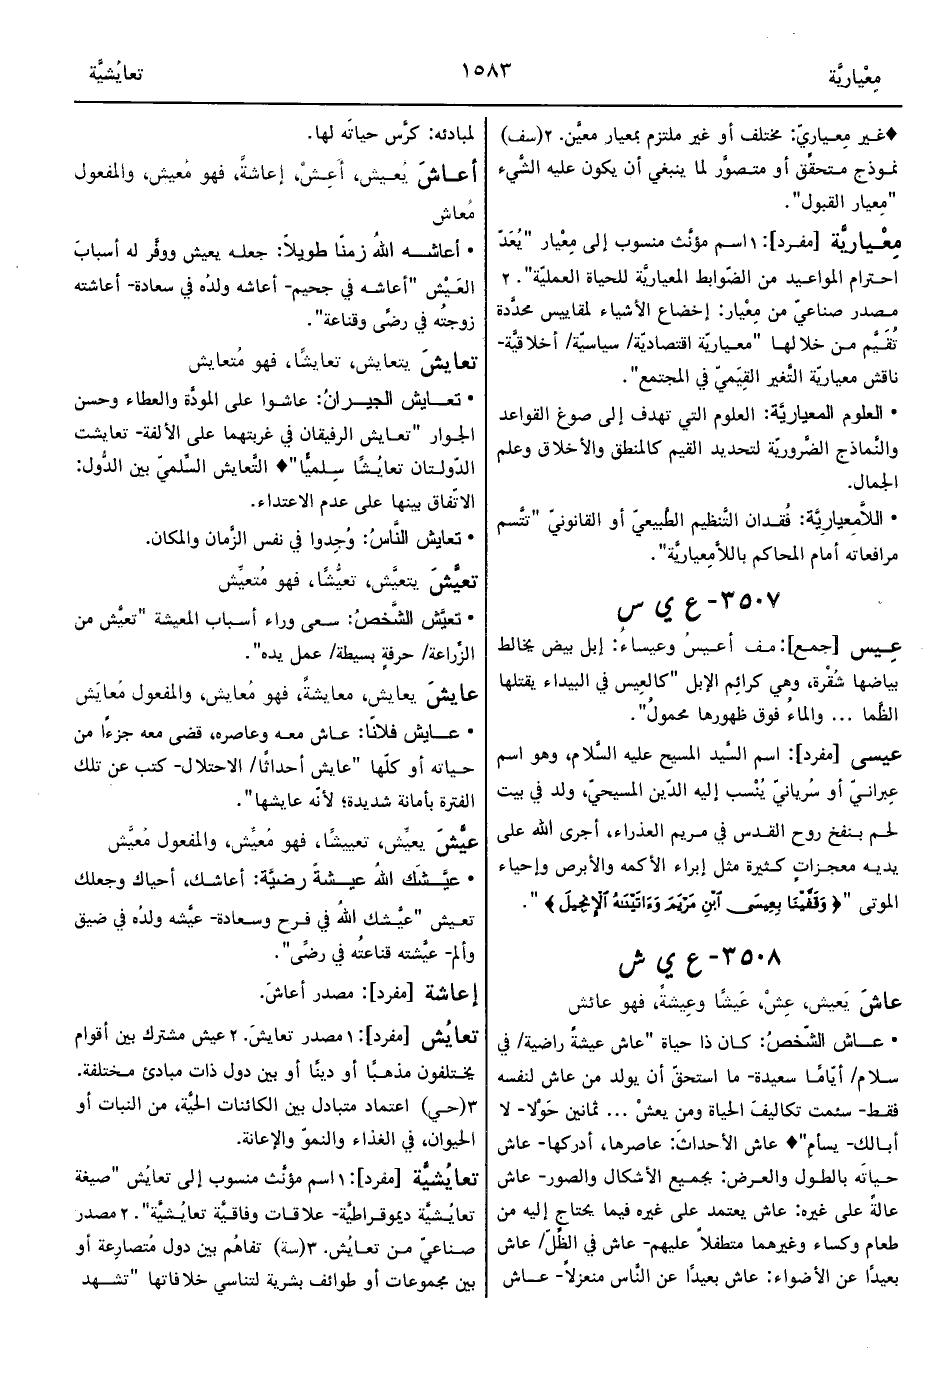 مِعْياريَّة
١٥٨٣
تعايُشيَّة
♦غير مِعياريّ: مختلف أو غير ملتزم بمعيار معيَّن. ٢(سف)
نموذج متحقِّق أو متصوَّر لما ينبغي أن يكون عليه الشَّيء
"مِعيار القبول".
مِعْياريَّة [مفرد]: ١اسم مؤنَّث منسوب إلى مِعْيار "يُعَدّ
احترام المواعيد من الضّوابط المعياريَّة للحياة العمليّة". ٢
مصدر صناعيّ من مِعْيار: إخضاع الأشياء لمقاييس محدَّدة
تُقَيَّم من خلالها "معياريّة اقتصاديّة/ سياسيّة/ أخلاقيّة-
ناقش معياريّة التّغير القِيَميّ في المجتمع".
• العلوم المعياريَّة: العلوم التي تهدف إلى صوغ القواعد
والنَّماذج الضَّروريّة لتحديد القيم كالمنطق والأخلاق وعلم
الجمال.
• اللاَّمِعياريَّة: فُقدان التَّنظيم الطَّبيعيّ أو القانونيّ "تتَّسم
مرافعاته أمام المحاكم باللاَّمعياريَّة".
٣٥٠٧- ع ي س
عِيس [جمع]: مف أعيسُ وعيساء: إبل بيض يخالط
بياضها شُقْرة، وهي كرائم الإبل "كالعِيس في البيداء يقتلها
الظَّما ... والماءُ فوق ظهورها محمولُ".
عيسى [مفرد]: اسم السَّيد المسيح عليه السَّلام، وهو اسم
عِبرانيّ أو سُريانيّ يُنْسب إليه الدّين المسيحيّ، ولد في بيت
لحم بنفخ روح القدس في مريم العذراء، أجرى الله على
يديه معجزاتٍ كثيرة مثل إبراء الأكمه والأبرص وإحياء
الموتى "﴿ وَقَفَّيْنَا بِعِيسَى ابْنِ مَرْيَمَ وَءَاتَيْنَٰهُ ٱلْإِنجِيلَ ﴾".
٣٥٠٨- ع ي ش
عاشَ يَعيش، عِشْ، عَيشًا وعِيشةً، فهو عائش
• عاش الشَّخصُ: كان ذا حياة "عاش عيشةً راضية/ في
سلام/ أيّامًا سعيدة- ما استحقّ أن يولد من عاش لنفسه
فقط- سئمت تكاليفَ الحياة ومن يعشْ ... ثمانين حَوْلاً- لا
أبالك- يسأم"♦ عاش الأحداثَ: عاصرها، أدركها- عاش
حياتَه بالطول والعرض: بجميع الأشكال والصور- عاش
عالةً على غيره: عاش يعتمد على غيره فيما يحتاج إليه من
طعام وكساء وغيرهما متطفلاً عليهم- عاش في الظّلّ/ عاش
بعيدًا عن الأضواء: عاش بعيدًا عن النَّاس منعزلاً- عاش
لمبادئه: كرَّس حياتَه لها.
أعاشَ يُعيش، أَعِشْ، إعاشةً، فهو مُعيش، والمفعول
مُعاش
• أعاشه اللهُ زمنًا طويلاً: جعله يعيش ووفَّر له أسبابَ
العَيْش "أعاشه في جحيم- أعاشه ولدُه في سعادة- أعاشته
زوجتُه في رضًى وقناعة".
تعايشَ يتعايش، تعايشًا، فهو مُتعايش
• تعايش الجيرانُ: عاشوا على المودَّة والعطاء وحسن
الجوار "تعايش الرفيقان في غربتهما على الألفة- تعايشت
الدّولتان تعايُشًا سِلميًّا"♦ التَّعايش السِّلميّ بين الدُّول:
الاتّفاق بينها على عدم الاعتداء.
• تعايش النَّاسُ: وُجِدوا في نفس الزَّمان والمكان.
تعيَّشَ يتعيَّش، تعيُّشًا، فهو مُتعيِّش
• تعيَّش الشَّخصُ: سعى وراء أسباب المعيشة "تعيَّش من
الزِّراعة/ حرفةٍ بسيطة/ عمل يده".
عايشَ يعايش، معايشةً، فهو مُعايش، والمفعول مُعايَش
• عايش فلانًا: عاش معه وعاصره، قضى معه جزءًا من
حياته أو كلّها "عايش أحداثًا/ الاحتلال- كتب عن تلك
الفترة بأمانة شديدة؛ لأنَّه عايشها".
عيَّشَ يعيِّش، تعييشًا، فهو مُعيِّش، والمفعول مُعيَّش
• عيَّشك اللهُ عيشةً رضيَّة: أعاشك، أحياك وجعلك
تعيش "عيَّشك اللهُ في فرح وسعادة- عيَّشه ولدُه في ضيق
وألم- عيَّشته قناعتُه في رضًى".
إعاشة [مفرد]: مصدر أعاشَ.
تعايُش [مفرد]: ١مصدر تعايشَ. ٢عيش مشترك بين أقوام
يختلفون مذهبًا أو دينًا أو بين دول ذات مبادئ مختلفة.
٣(حي) اعتماد متبادل بين الكائنات الحيَّة، من النبات أو
الحيوان، في الغذاء والنموّ والإعانة.
تعايُشيَّة [مفرد]: ١اسم مؤنَّث منسوب إلى تعايُش "صيغة
تعايُشيَّة ديموقراطيَّة- علاقات وفاقيَّة تعايُشيَّة". ٢مصدر
صناعيّ من تعايُش. ٣(سة) تفاهُم بين دول مُتصارعة أو
بين مجموعات أو طوائف بشرية لتناسي خلافاتها "تشهد